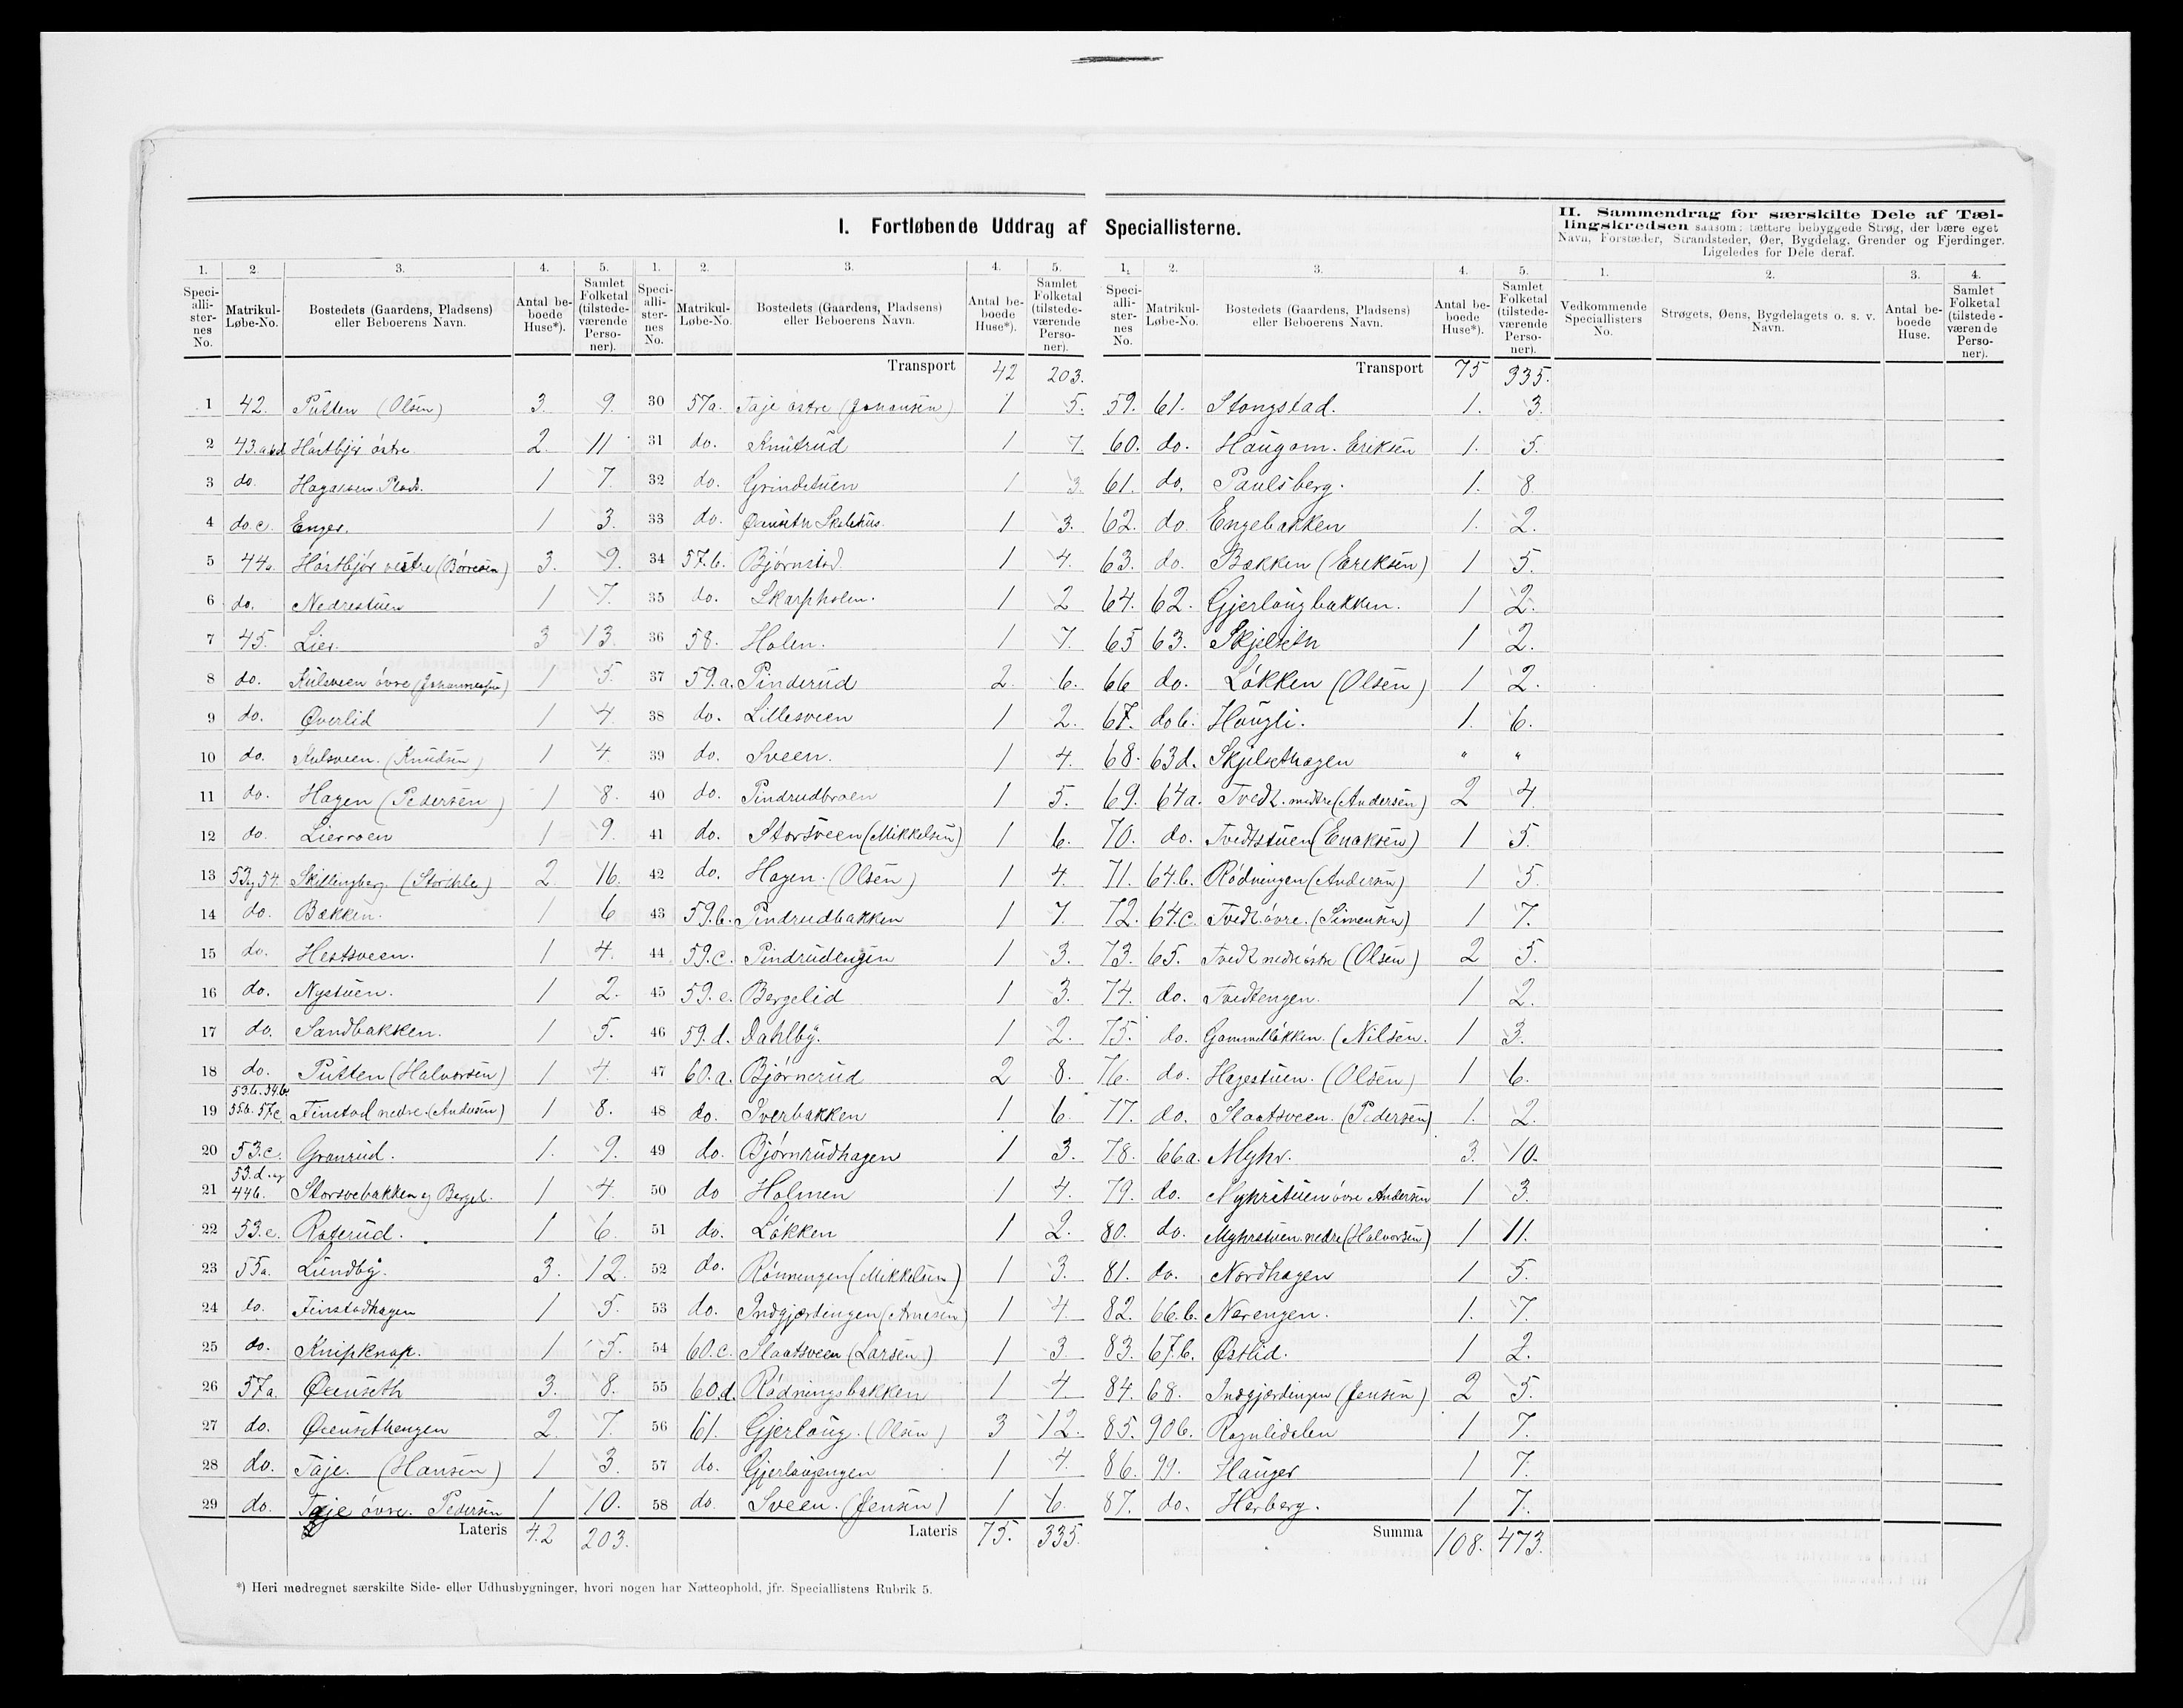 I. Fortløbende Uddrag af Speciallisterne.
II. Sammendrag for særskilte Dele af Tæl-
lingskredsen saasom: tættere bebyggede Strøg, der bære eget
Navn, Forstæder, Strandsteder, Øer, Bygdelag, Grender og Fjerdinger.
Ligeledes for Dele deraf.
1. 2. 3. 4. 5.
Specialli-sternes No. Matrikul-Løbe-No. Bostedets (Gaardens, Pladsens) eller Beboerens Navn. Antal beboede Huse*). Samlet Folketal (tilstedeværende Personer).
1 42. Pütten (Olsen) 3. 9.
2 Høstbjør østre 2. 11
3 do. Hagaasen Plads. 1 7.
4 do. c. Enger. 1 3.
5 44a. Høstbjør vestre (Børresen) 3. 9.
6 do. Nedrestuen 1 7.
7 45. Lier. 3 13.
8 do. Kulsveen øvre (Johannessen) 1 5.
9 do. Øverlid 1 4.
10 do. Kulsveen. (Knudsen) 1 4.
11 do. Hagen (Pedersen) 1 8.
12 do. Lierroen 1 9.
13 53 og 54. Skillingberg. 2. 16.
14 do. Bakken. 1 6
15 do. Hestsveen. 1 4.
16 do. Nystuen. 1 2.
17 do. Sandbakken. 1 5.
18 do. Pütten (Halvorsen) 1 4.
19 53b. 54b. 55b. 57c. Finstad nedre. (Andersen) 1 8.
20 53.c. Granrud. 1. 9.
21 53.d. og 44b. Storsvebakken og Bergel. 1 4.
22 53.e. Roterud. 1 6.
23 55a. Lundby. 3. 12.
24 do. Finstadhagen 1 5.
25 do. Knipknap. 1 5.
26 57a. Øeunseth 3. 8.
27 do. Øeunsethengen 2. 7.
28 do. Taje. (Hansen) 1 3.
29 do. Taje øvre. Pedersen 1 10.
Lateris 42 203.
1. 2. 3. 4. 5.
Specialli-sternes No. Matrikul-Løbe-No. Bostedets (Gaardens, Pladsens) eller Beboerens Navn. Antal beboede Huse*). Samlet Folketal (tilstedeværende Personer).
Transport 42 203.
30 57a. Taje østre (Johansen) 1 5.
31 do. Knutrud 1 7.
32 do. Grindstuen 1 3.
33 do. Øeunseth Skolehus. 1 3.
34 57.b. Bjørnstad. 1 4.
35 do. Skarpholen. 1 2
36 58. Holen. 1 7.
37 59.a. Pinderud 2. 6.
38 do. Lillesveen 1 2.
39 do. Sveen. 1 4.
40 do. Pindrudbraen 1 5.
41 do. Storsveen (Mikkelsen) 1 6.
42 do. Hagen. (Olsen) 1 4.
43 59.b. Pindrudbakken 1 7.
44 59.c. Pindrudengen 1 3.
45 59.e. Bergelid 1 3.
46 59.d. Dahlby. 1 2.
47 60.a. Bjørnerud 2 8.
48 do. Sverbakken 1 6
49 do. Bjørnrudhagen 1 3.
50 do Holmen 1 4.
51 do. Løkken 1 2.
52 do. Rønningen (Mikkelsen) 1 3.
53 do. Indgjærdingen (Arnesen) 1 4.
54 60.c. Slaatsveen (Larsen.) 1 3
55 60.d. Rødningsbakken 1 4
56 61. Gjerlaug. (Olsen) 3 12.
57 do. Gjerlaugengen 1 4.
58 do. Sveen. (Jensen) 1 6.
Lateris 75. 335.
1. 2. 3. 4. 5.
Specialli-sternes No. Matrikul-Løbe-No. Bostedets (Gaardens, Pladsens) eller Beboerens Navn. Antal beboede Huse*). Samlet Folketal (tilstedeværende Personer).
Transport 75 335.
59. 61. Stangstad. 1. 3.
60. do. Haugom. Eriksen 1. 5.
61. do. Paulsberg. 1. 8.
62. do Engebakken 1. 2.
63. do. Bakken (Eriksen) 1 5.
64. 62. Gjerlaugbakken. 1 2.
65 63. Skjelseth 1 2.
66 do. Løkken (Olsen) 1 2.
67. do b. Haugli. 1. 6.
68. 63d. Skjelsethagen " "
69. 64a. Tvedt. midtre (Andersen) 2 4.
70. do. Tvedtstuen (Enoksen) 1 5.
71. 64.b. Rødningen (Andersen) 1 5.
72. 64.c. Tvedt øvre. (Simensen) 1 7.
73. 65. Tvedt nedre østre (Olsen) 2 5.
74. do. Tvedtengen. 1 2.
75. do. Gammelløkken. (Nilsen. 1 3.
76. do. Hagestuen. (Olsen) 1 6.
77. do. Slaatsveen. (Pedersen) 1. 2.
78. 66a. Myhr. 3. 10.
79. do. Myhrstuen øvre Andersen 1 3.
80. do. Myhrstuen nedre (Halvorsen) 1 11.
81. do. Nordhagen 1 5.
82. 66.b. Nerengen. 1. 7.
83. 67.b. Østlid. 1 2.
84. 68. Indgjærdingen (Jensen) 2 5.
85. 90b. Ragnlidalen 1 7.
86. 99. Hauger 1 7.
87. do. Herberg. 1 7.
Summa 108. 473.
1. 2. 3. 4.
Vedkommende Speciallisters No. Strøgets, Øens, Bygdelagets o. s. v. Navn. Antal beboede Huse. Samlet Folketal (tilstedeværende Personer).
*) Heri medregnet særskilte Side- eller Udhusbygninger, hvori nogen har Natteophold, jfr. Speciallistens Rubrik 5.